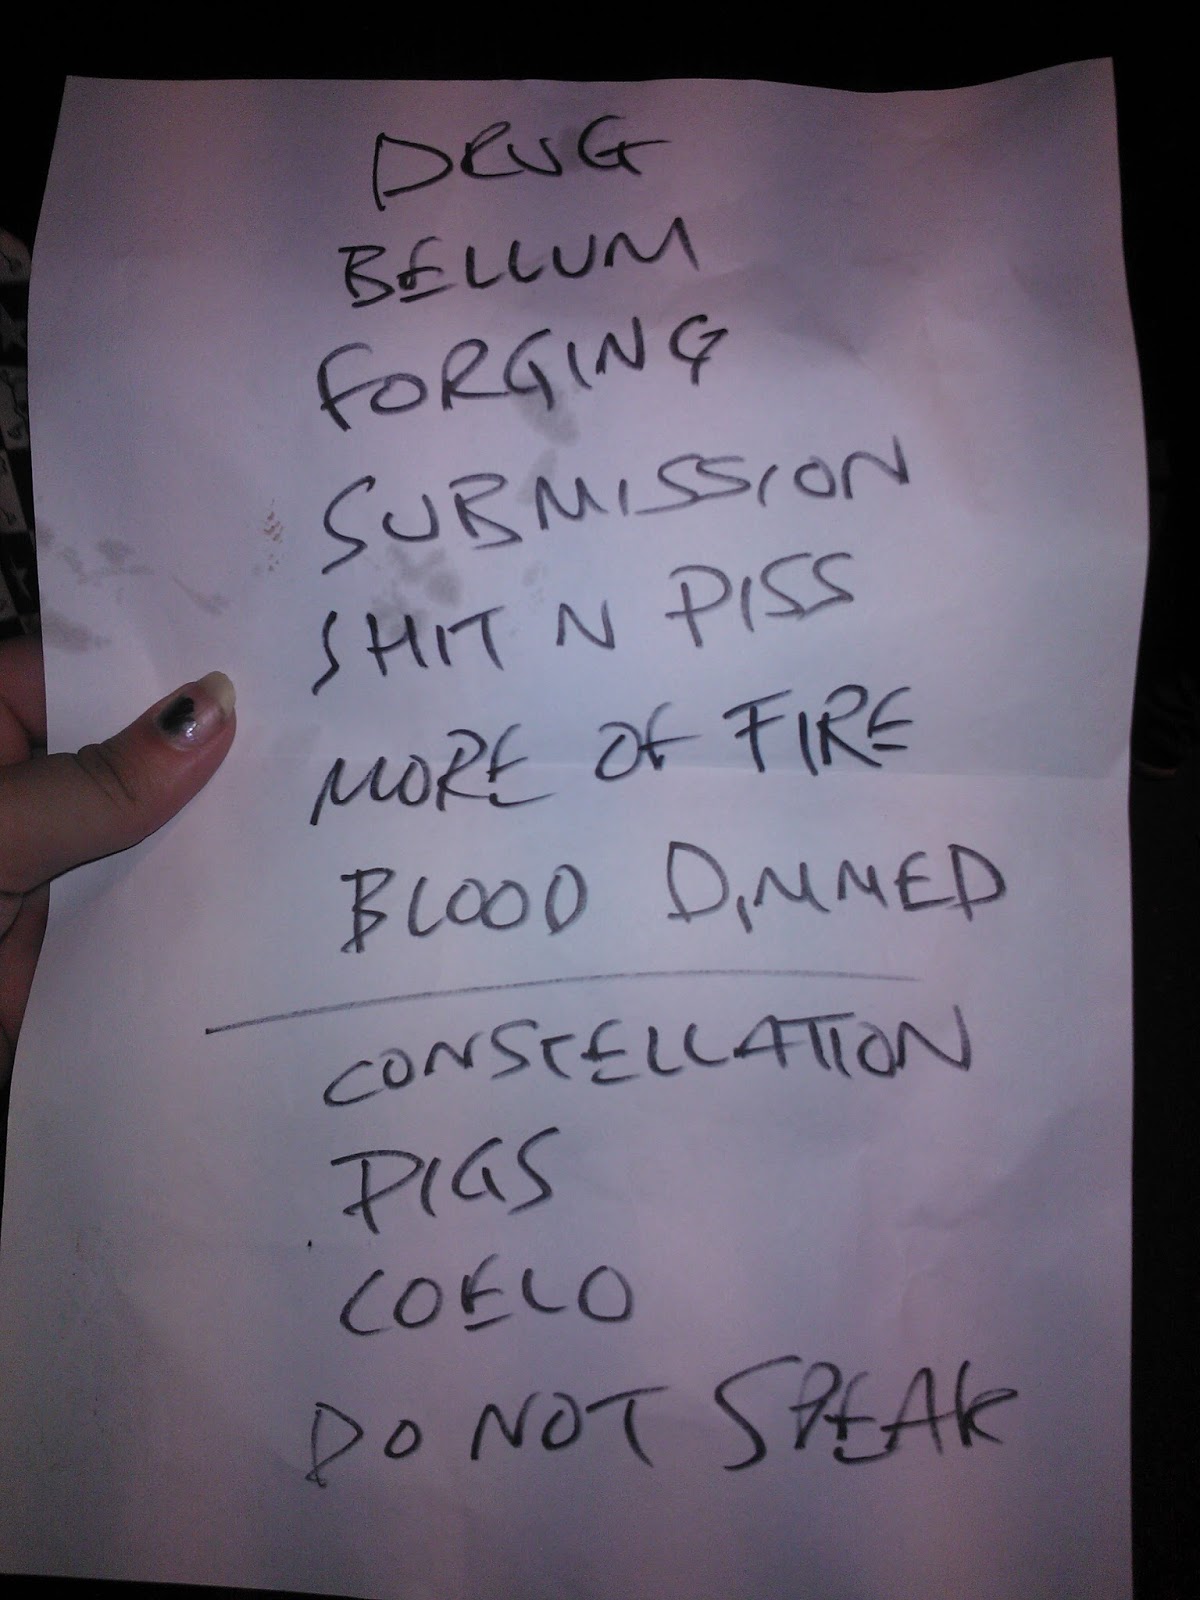 DRUG
BELLUM
FORGING
SUBMISSION
SHIT N PISS
MORE OF FIRE
BLOOD DIMMED
CONSTELLATION
PIGS
COELO
DO NOT SPEAK